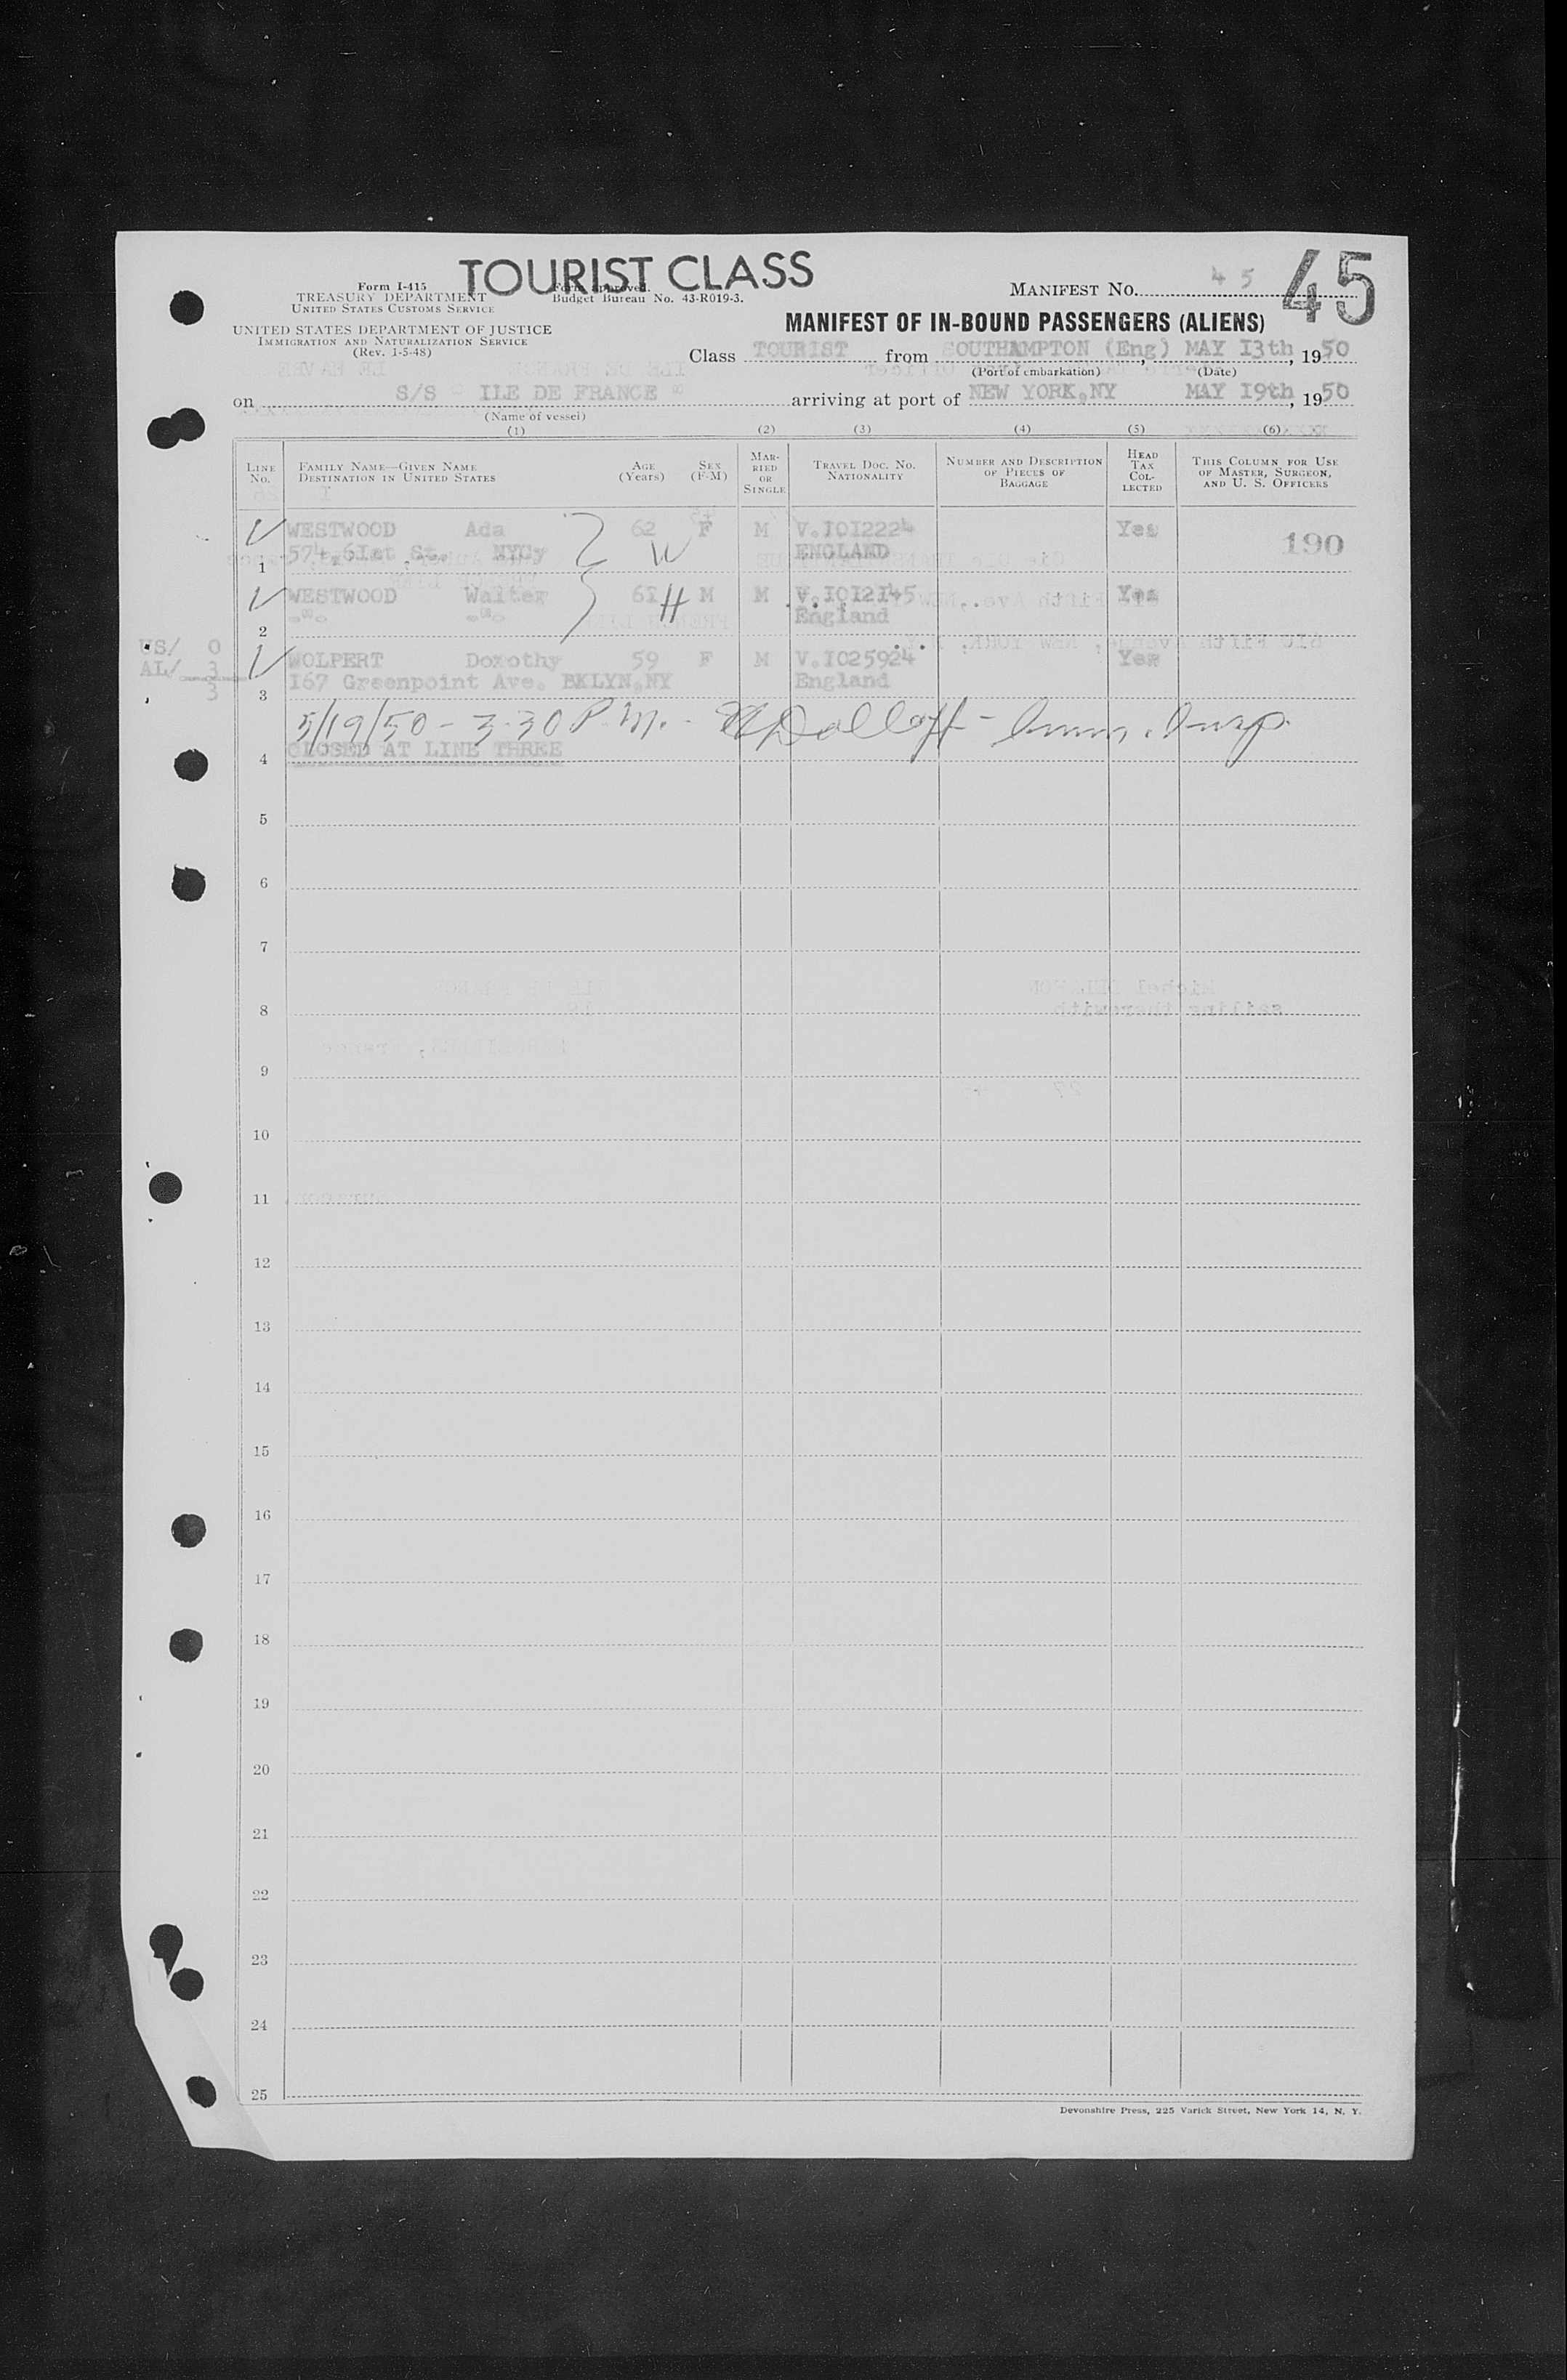 TOURIST CLASS
45
Form I-415
TREASURY DEPARTMENT
UNITED STATES CUSTOMS SERVICE
Form approved.
Budget Bureau No. 43-R019-3.
MANIFEST NO. 45
UNITED STATES DEPARTMENT OF JUSTICE
IMMIGRATION AND NATURALIZATION SERVICE
(Rev. 1-5-48)
MANIFEST OF IN-BOUND PASSENGERS (ALIENS)
Class TOURIST from SOUTHAMPTON (Eng) MAY I3th, 1950
(Port of embarkation) (Date)
on S/S ILE DE FRANCE arriving at port of NEW YORK,NY MAY I9th, 1950
(Name of vessel)
(1) (2) (3) (4) (5) (6)
LINE No. FAMILY NAME—GIVEN NAME DESTINATION IN UNITED STATES AGE (Years) SEX (F-M) MARRIED OR SINGLE TRAVEL DOC. NO. NATIONALITY NUMBER AND DESCRIPTION OF PIECES OF BAGGAGE HEAD TAX COLLECTED THIS COLUMN FOR USE OF MASTER, SURGEON, AND U. S. OFFICERS
WESTWOOD Ada 62 F M V.I0I2224 Yes 190
1 574,6Ist St. NYCy W ENGLAND
WESTWOOD Walter H M M V.I0I2I45 Yes
2 -"- -"- England
US/ 0
AL/ 3
3
WOLPERT Dorothy 59 F M V.I025924 Yes
3 I67 Greenpoint Ave. BKLYN,NY England
5/19/50 - 3-30 P.M. - Dolloff - Imm. Insp.
4 CLOSED AT LINE THREE
5
6
7
8
9
10
11
12
13
14
15
16
17
18
19
20
21
22
23
24
25
Devonshire Press, 225 Varick Street, New York 14, N. Y.